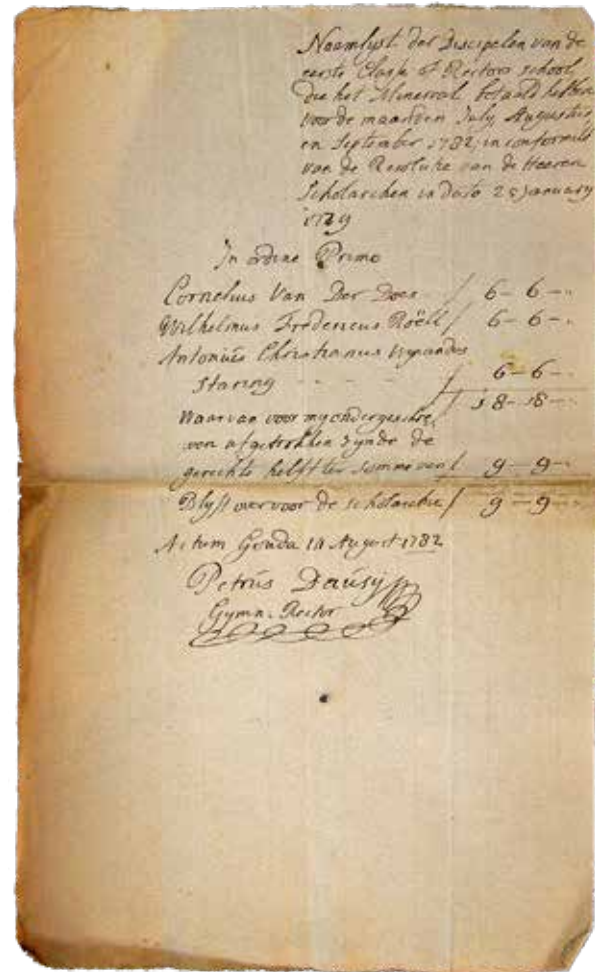 Naamlyst der Discipelen van de
eerste Classe of Rectors school,
die het Minerval betaald hebben
voor de maanden July, Augustus,
en September 1782, in conformité
van de Resolutie van de Heeren
Scholarchen in dato 25 January
In ordine Primo
Cornelius Van Der Does / 6 - 6 - "
Wilhelmus Fredericus Roëll / 6 - 6 - "
Antonius Christianus Wynandus
Staring - - - / 6 - 6 - "
/ 18 - 18 - "
Waarvan voor my ondergeschre,
ven afgetrokken zynde de
gerechte helft ter somme van / 9 - 9 - "
Blyft over voor de scholarchie / 9 - 9 - "
Actum Gouda August 1782
Petrus Dausy
Gymn. Rector